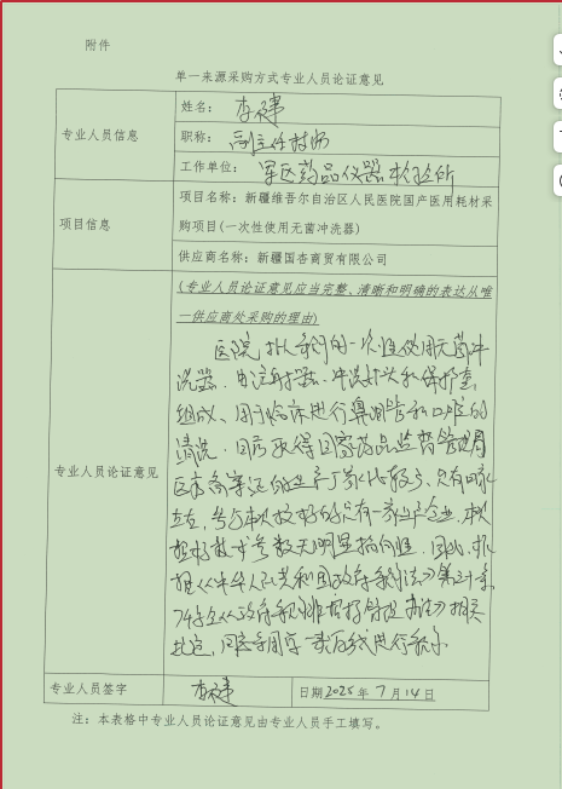 附件
单一来源采购方式专业人员论证意见
专业人员信息
姓名:
职称: 副主任技师
工作单位: 军区药品仪器检验所
项目信息
项目名称:新疆维吾尔自治区人民医院国产医用耗材采
购项目(一次性使用无菌冲洗器)
供应商名称:新疆国杏商贸有限公司
专业人员论证意见
(专业人员论证意见应当完整、清晰和明确的表达从唯
一供应商处采购的理由)
医院拟采购的一次性使用无菌冲
洗器,由注射器、冲洗针头和保护套
组成、用于临床进行鼻泪管和口腔的
清洗,目前获得国家药品监督管理局
医疗备案证的生产厂家比较少、只有
参数无明显指向性,因此,根
据《中华人民共和国政府采购法》第三十一条
相关
规定,同意采用单一来源方式进行采购
专业人员签字
日期2025年7月14日
注:本表格中专业人员论证意见由专业人员手工填写。